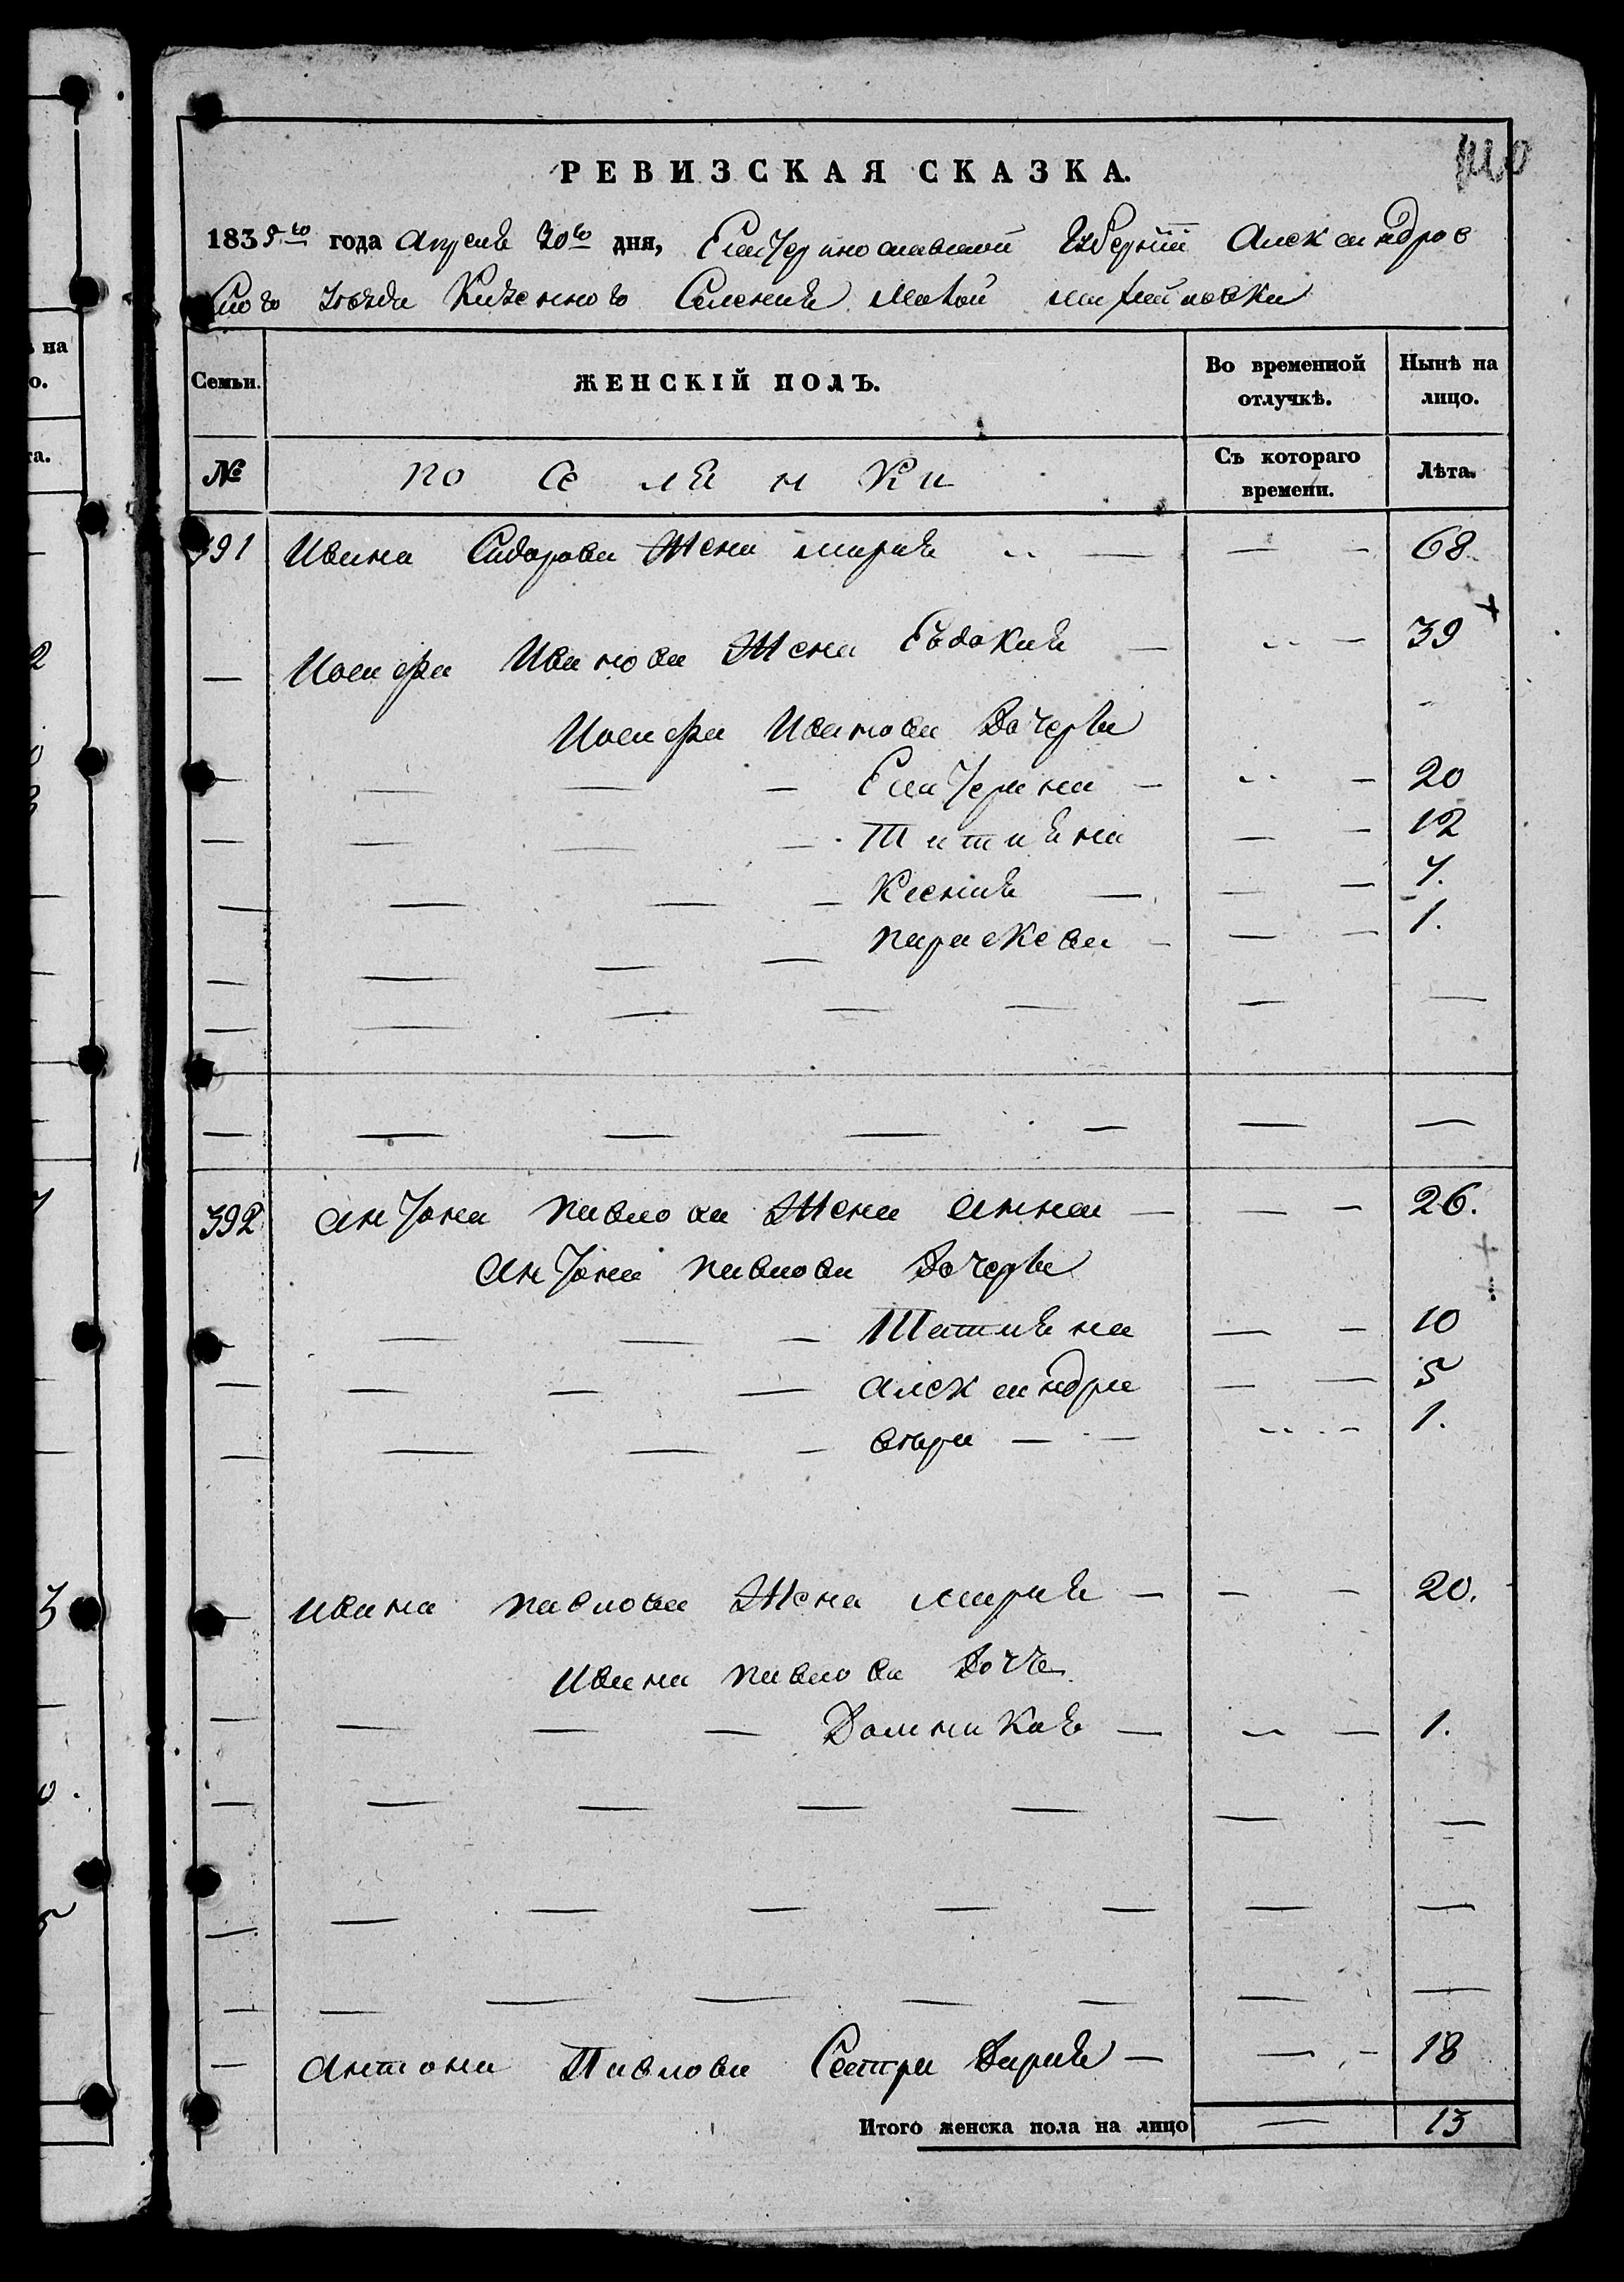 РЕВИЗСКАЯ СКАЗКА.
1835го года Апреля 30го дня, Екатеринославской Губернiи Александров
ского уезда Казенного Селения Малой Михайловки
Семьи.
ЖЕНСКІЙ ПОЛЪ.
Во временной отлучкѣ.
Нынѣ на лицо.
№
Поселянки
Съ котораго времени.
Лѣта.
391 Ивана Сидорова Жена Мария 68.
Иосифа Иванова Жена Евдокия 39
Иосифа Иванова Дочери
Екатерина 20
Татияна 12
Ксения 7.
Параскева 1.
392 Антона Павлова Жена Анна 26.
Антона Павлова Дочери
Татияна 10
Александра 5
1.
Ивана Павлова Жена Мария 20.
Ивана Павлова Дочь
Домникия 1.
Антона Павлова Сестра Дария 18
Итого женска пола на лицо 13